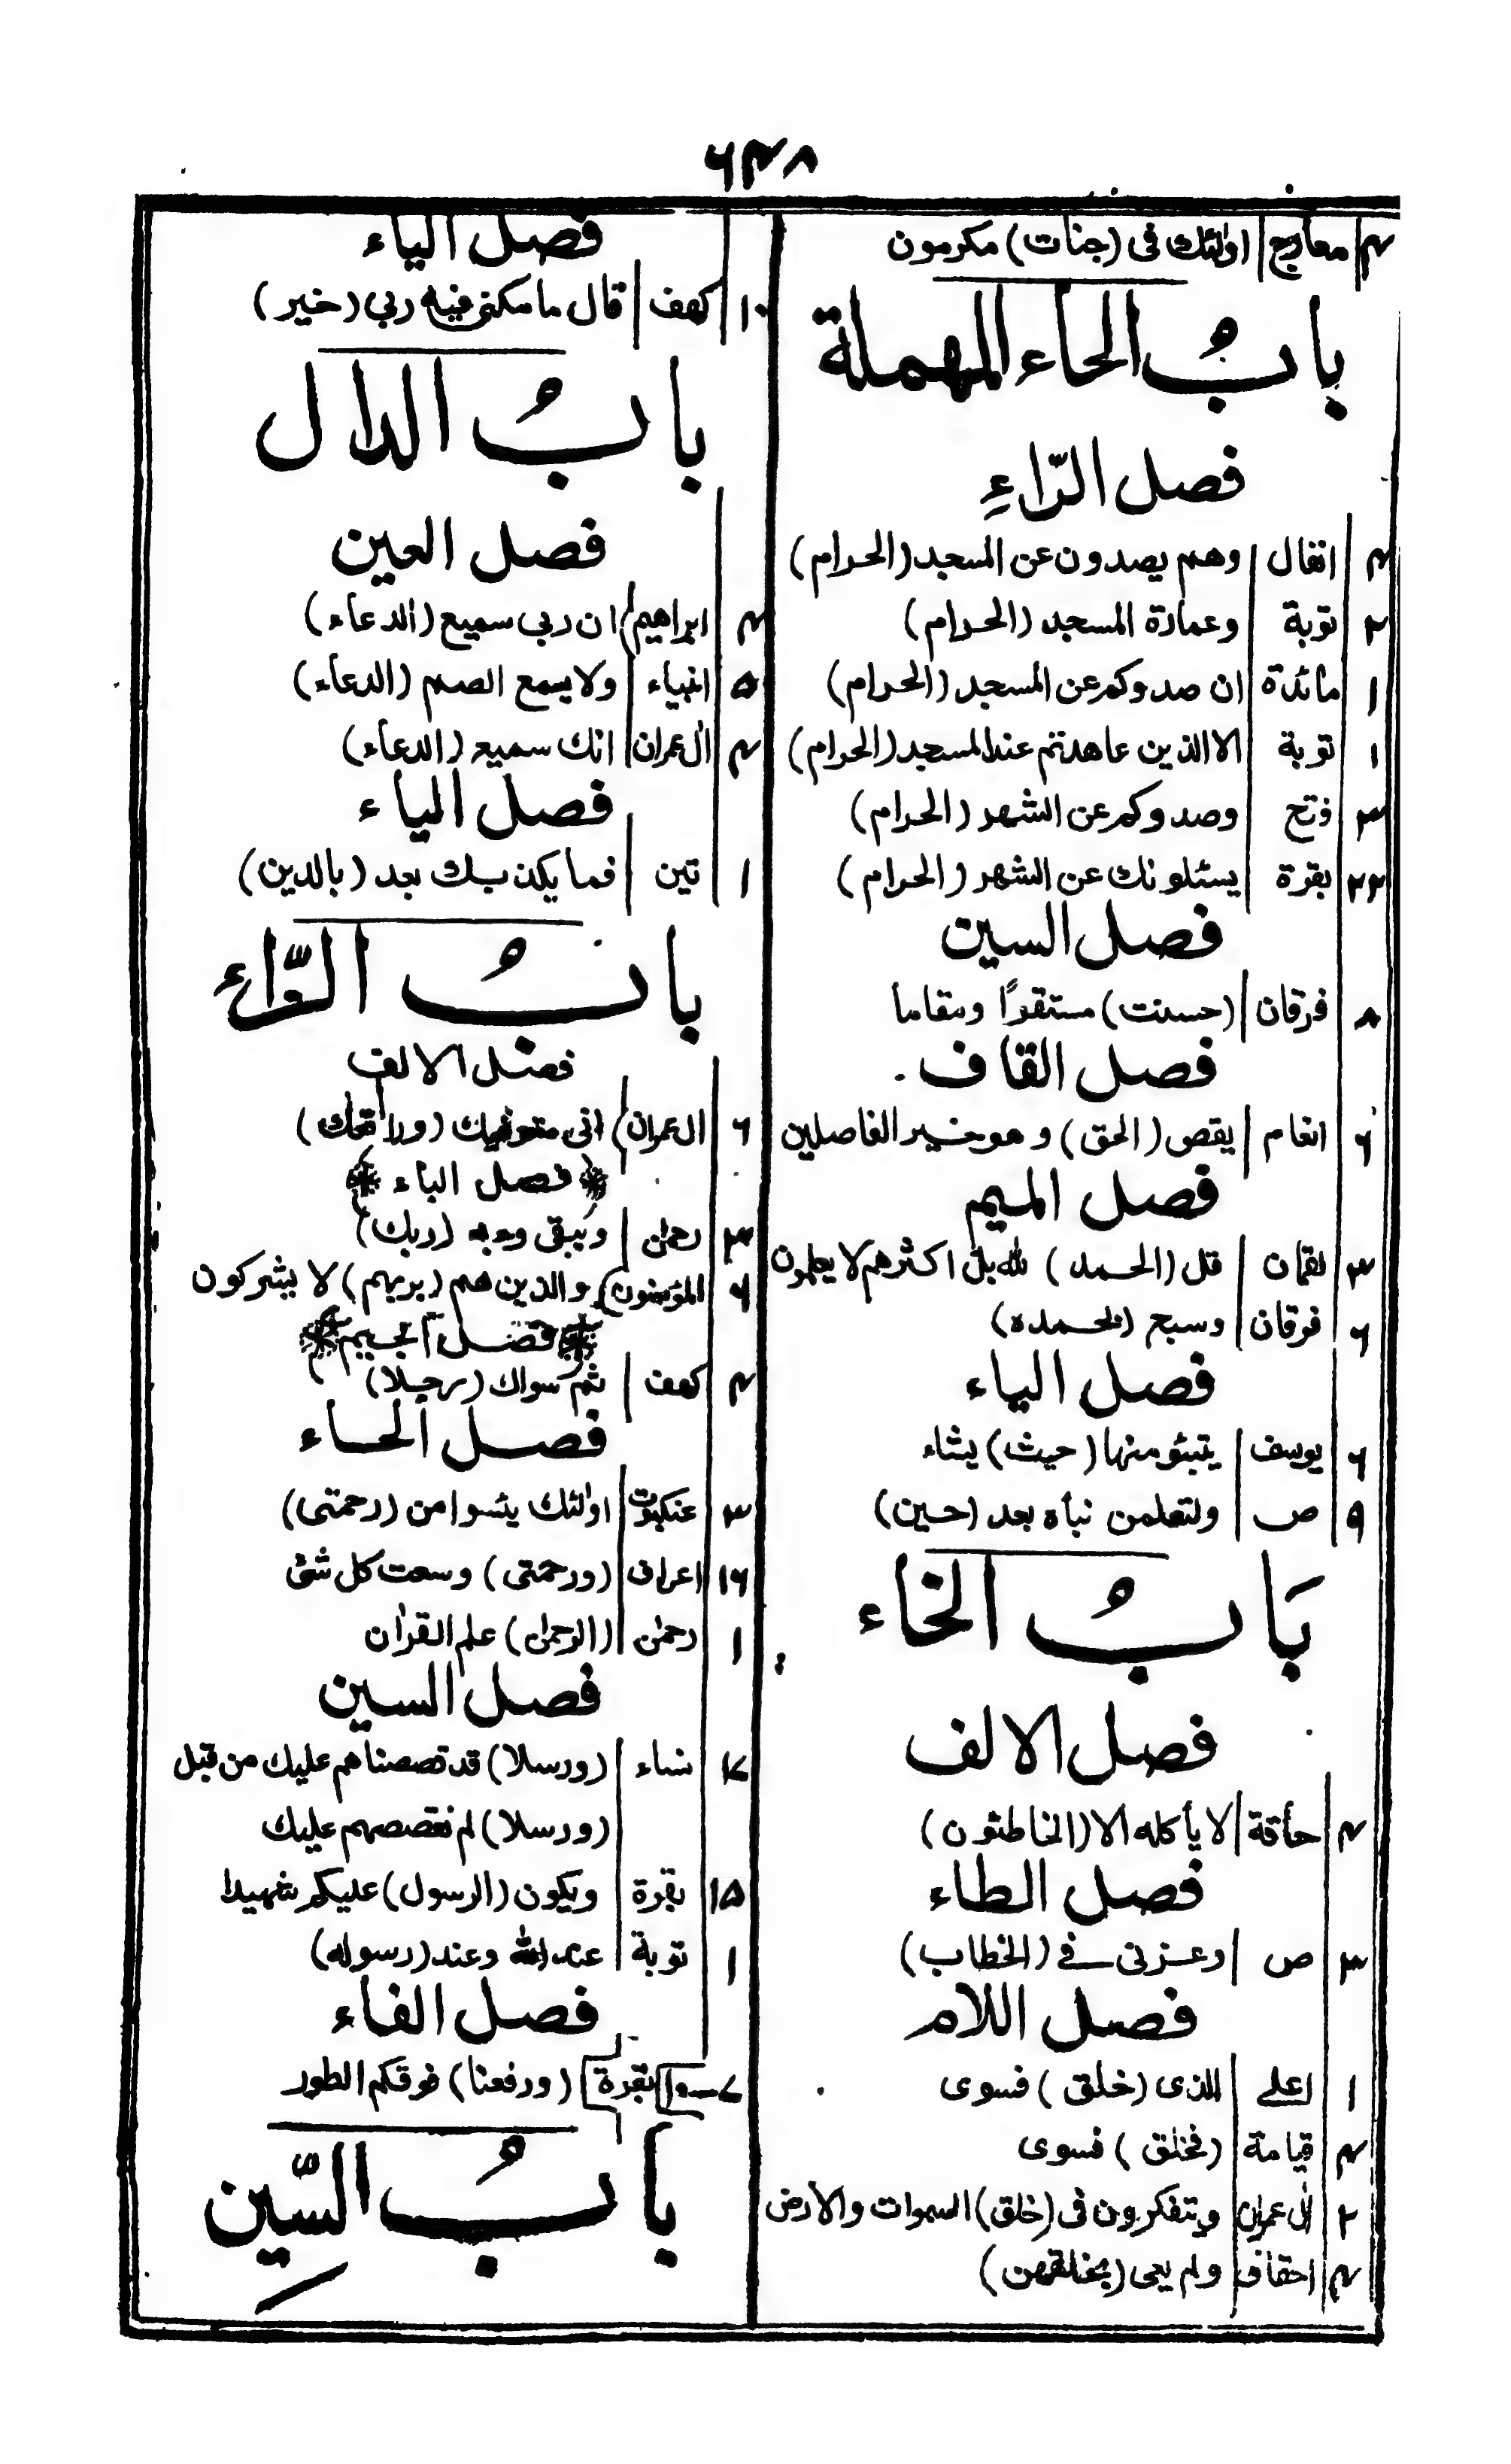 ۶۴۸
۴ معارج اولٰئك فى (جنات) مكرمون
بابُ الحاء المهملة
فصل الرّاءِ
۴ انفال وهم يصدون عن المسجد (الحرام)
۲ توبة وعمارة المسجد (الحرام)
۱ مائدة ان صدوكم عن المسجد (الحرام)
۱ توبة الا الذين عاهدتم عند المسجد (الحرام)
۳ فتح وصدوكم عن الشهر (الحرام)
۲۲ بقرة يسئلونك عن الشهر (الحرام)
فصل السين
۸ فرقان (حسنت) مستقرًا ومقاما
فصل القاف
۶ انعام يقص (الحق) وهو خير الفاصلين
فصل الميم
۳ لقمان قل (الحمد) لله بل اكثرهم لا يعلمون
۶ فرقان وسبح (بحمده)
فصل الياء
۶ يوسف يتبئو منها (حيث) يشاء
۹ ص ولتعلمن نبأه بعد (حين)
بَابُ الخاء
فصل الالف
۴ حاقة لا يأكله الا (الخاطئون)
فصل الطاء
۳ ص وعزنى فے (الخطاب)
فصل اللام
۱ اعلے الذى (خلق) فسوى
۴ قيامة (فخلق) فسوى
۲ اٰل عمران ويتفكرون فى (خلق) السموات والارض
۴ احقاف ولم يعى (بخلقهن)
فصل الياء
۱۰ كهف قال ما مكنى فيه ربي (خير)
بابُ الدال
فصل العين
۴ ابراهيم ان ربي سميع (الدعاء)
۵ انبياء ولا يسمع الصم (الدعاء)
۴ اٰل عمران انك سميع (الدعاء)
فصل الياء
۱ تين فما يكذبك بعد (بالدين)
بابُ الرّاءِ
فصل الالف
۶ ال عمران انى متوفيك (ورافعك)
فصل الباء
۳ رحمٰن ويبقى وجه (ربك)
۶ المؤمنون والذين هم (بربهم) لا يشركون
فصل الجيم
۴ كهف ثم سواك (رجلا)
فصل الحاء
۳ عنكبوت اولٰئك يئسوا من (رحمتى)
۱۶ اعراف (ورحمتى) وسعت كل شئ
۱ رحمٰن (الرحمٰن) علم القراٰن
فصل السين
۱۷ نساء (ورسلا) قد قصصناهم عليك من قبل
(ورسلا) لم نقصصهم عليك
۱۵ بقرة ويكون (الرسول) عليكم شهيدا
۱ توبة عند الله وعند (رسوله)
فصل الفاء
۷ــ۱۰ بقرة (ورفعنا) فوقكم الطور
بابُ السّين